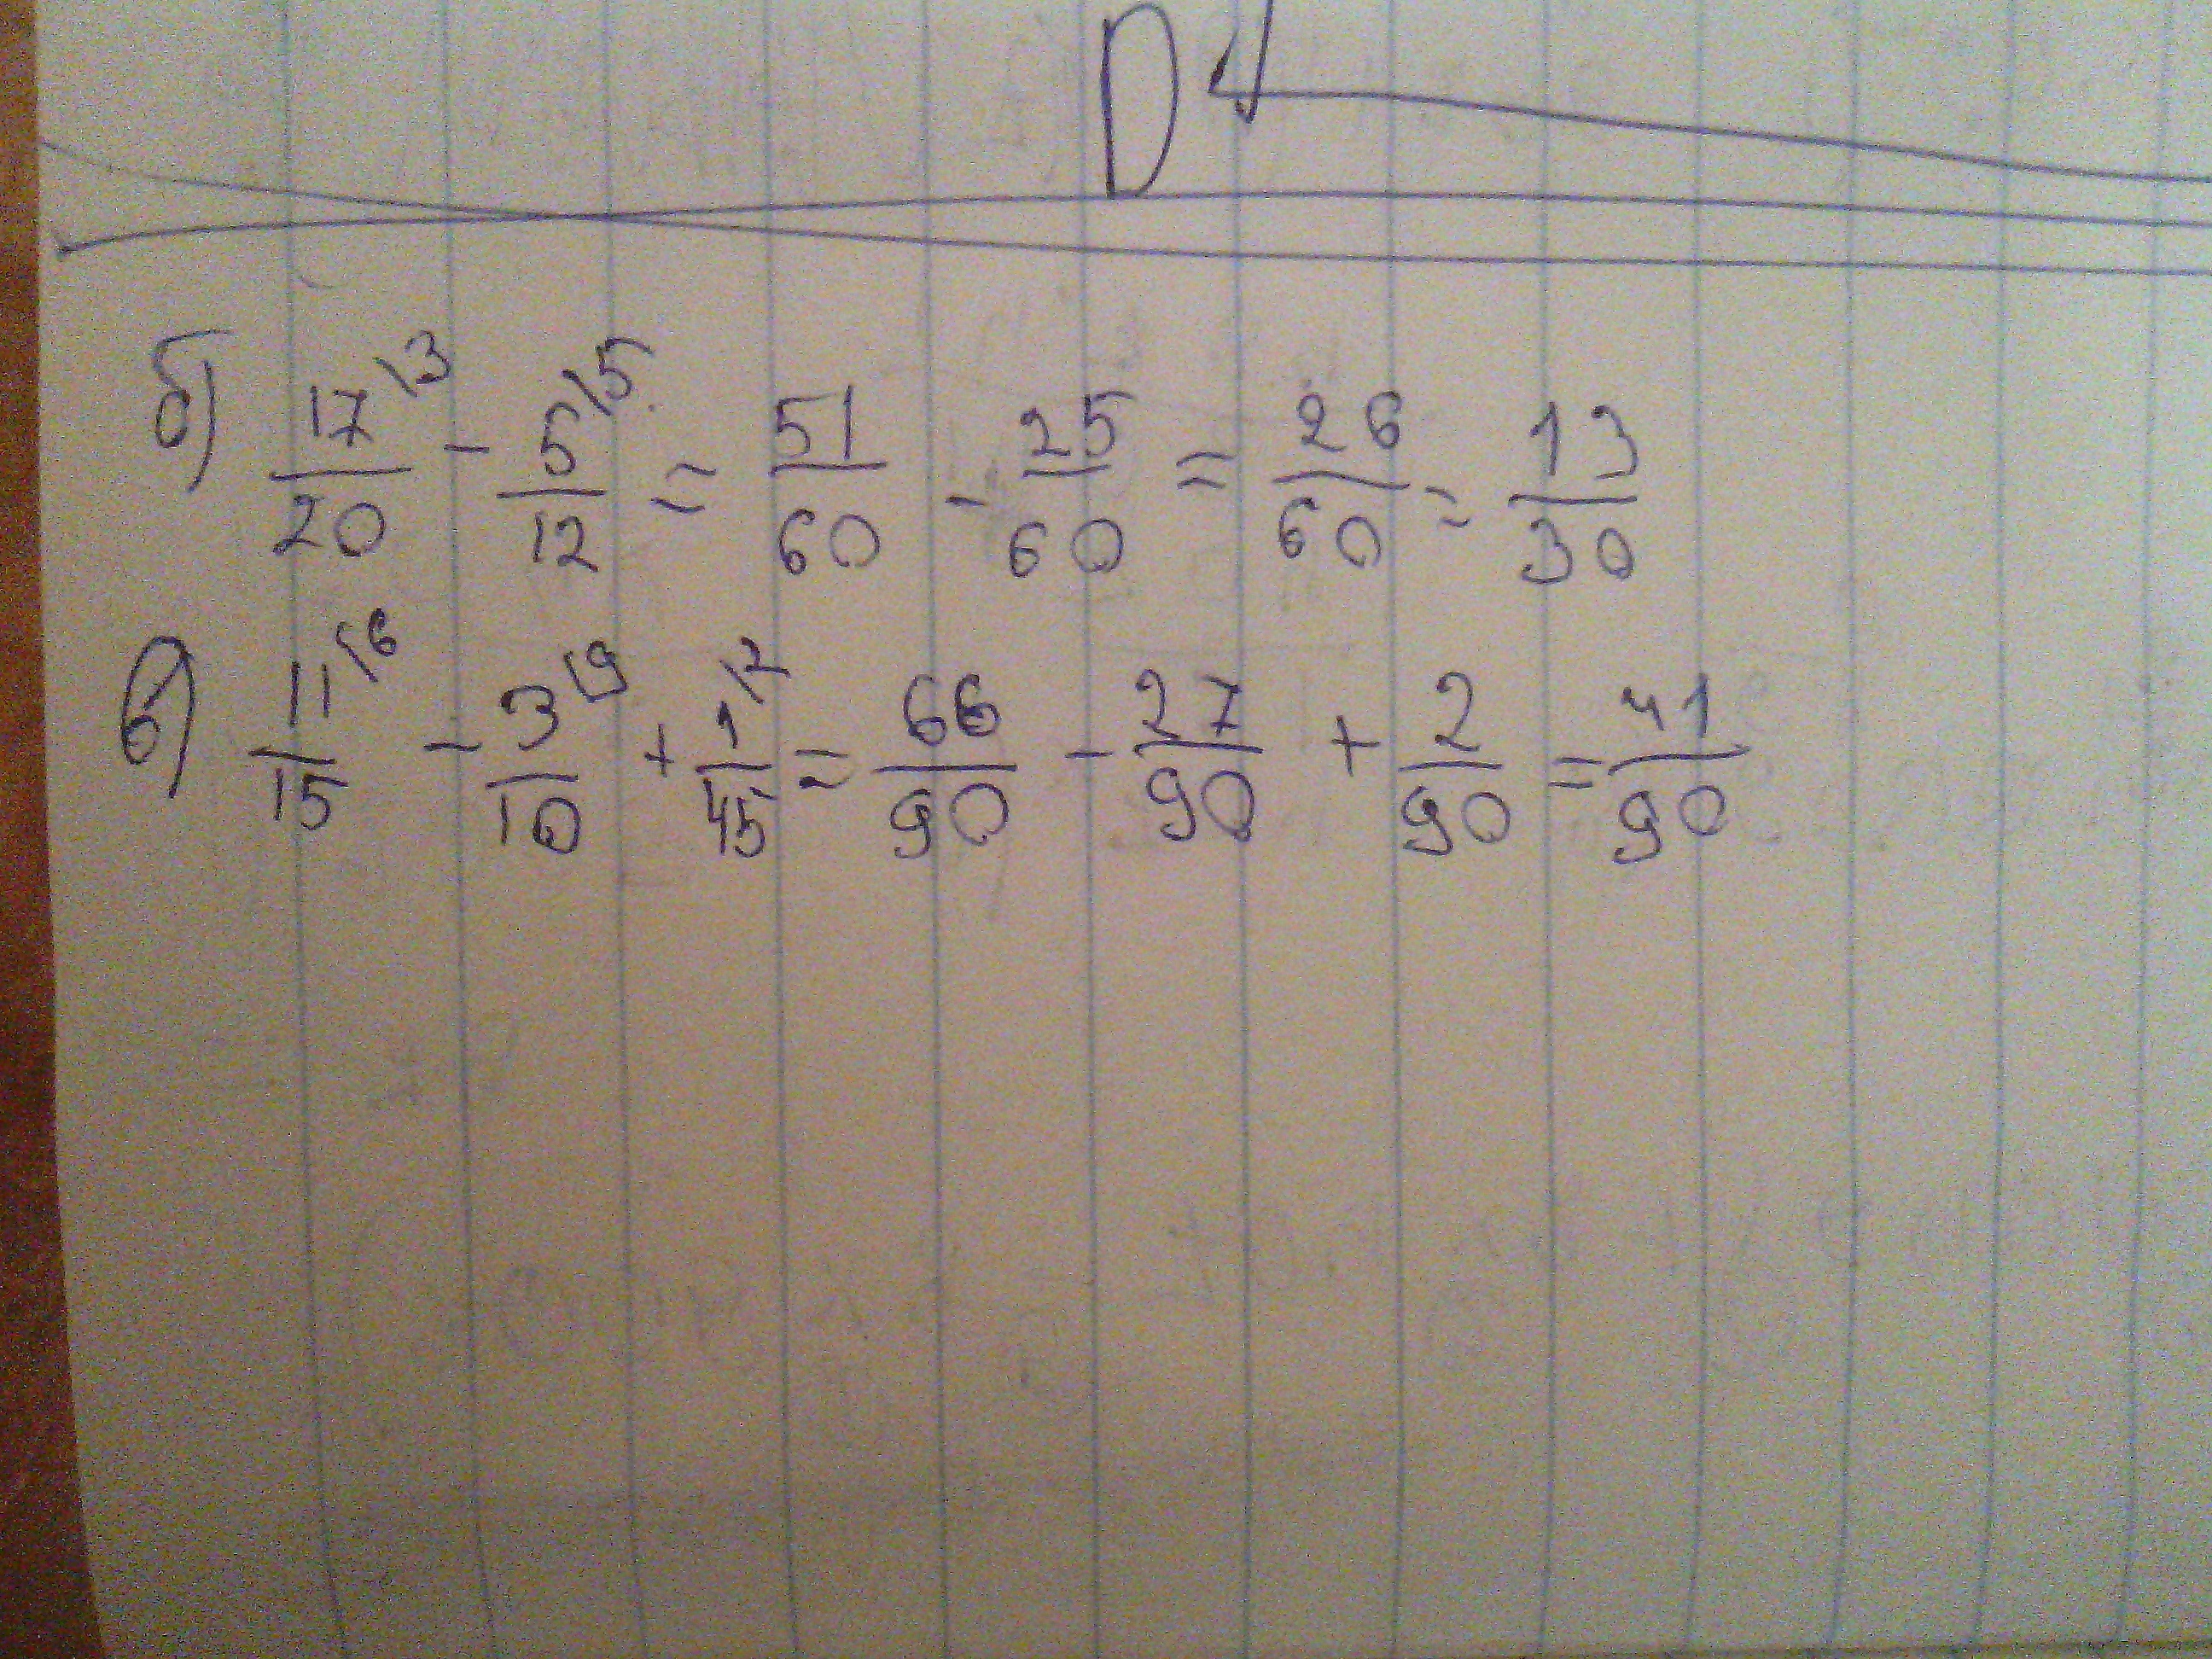 б) 17\3/20 - 5\5/12 = 51/60 - 25/60 = 26/60 = 13/30
в) 11\6/15 - 3\9/10 + 1\2/45 = 66/90 - 27/90 + 2/90 = 41/90